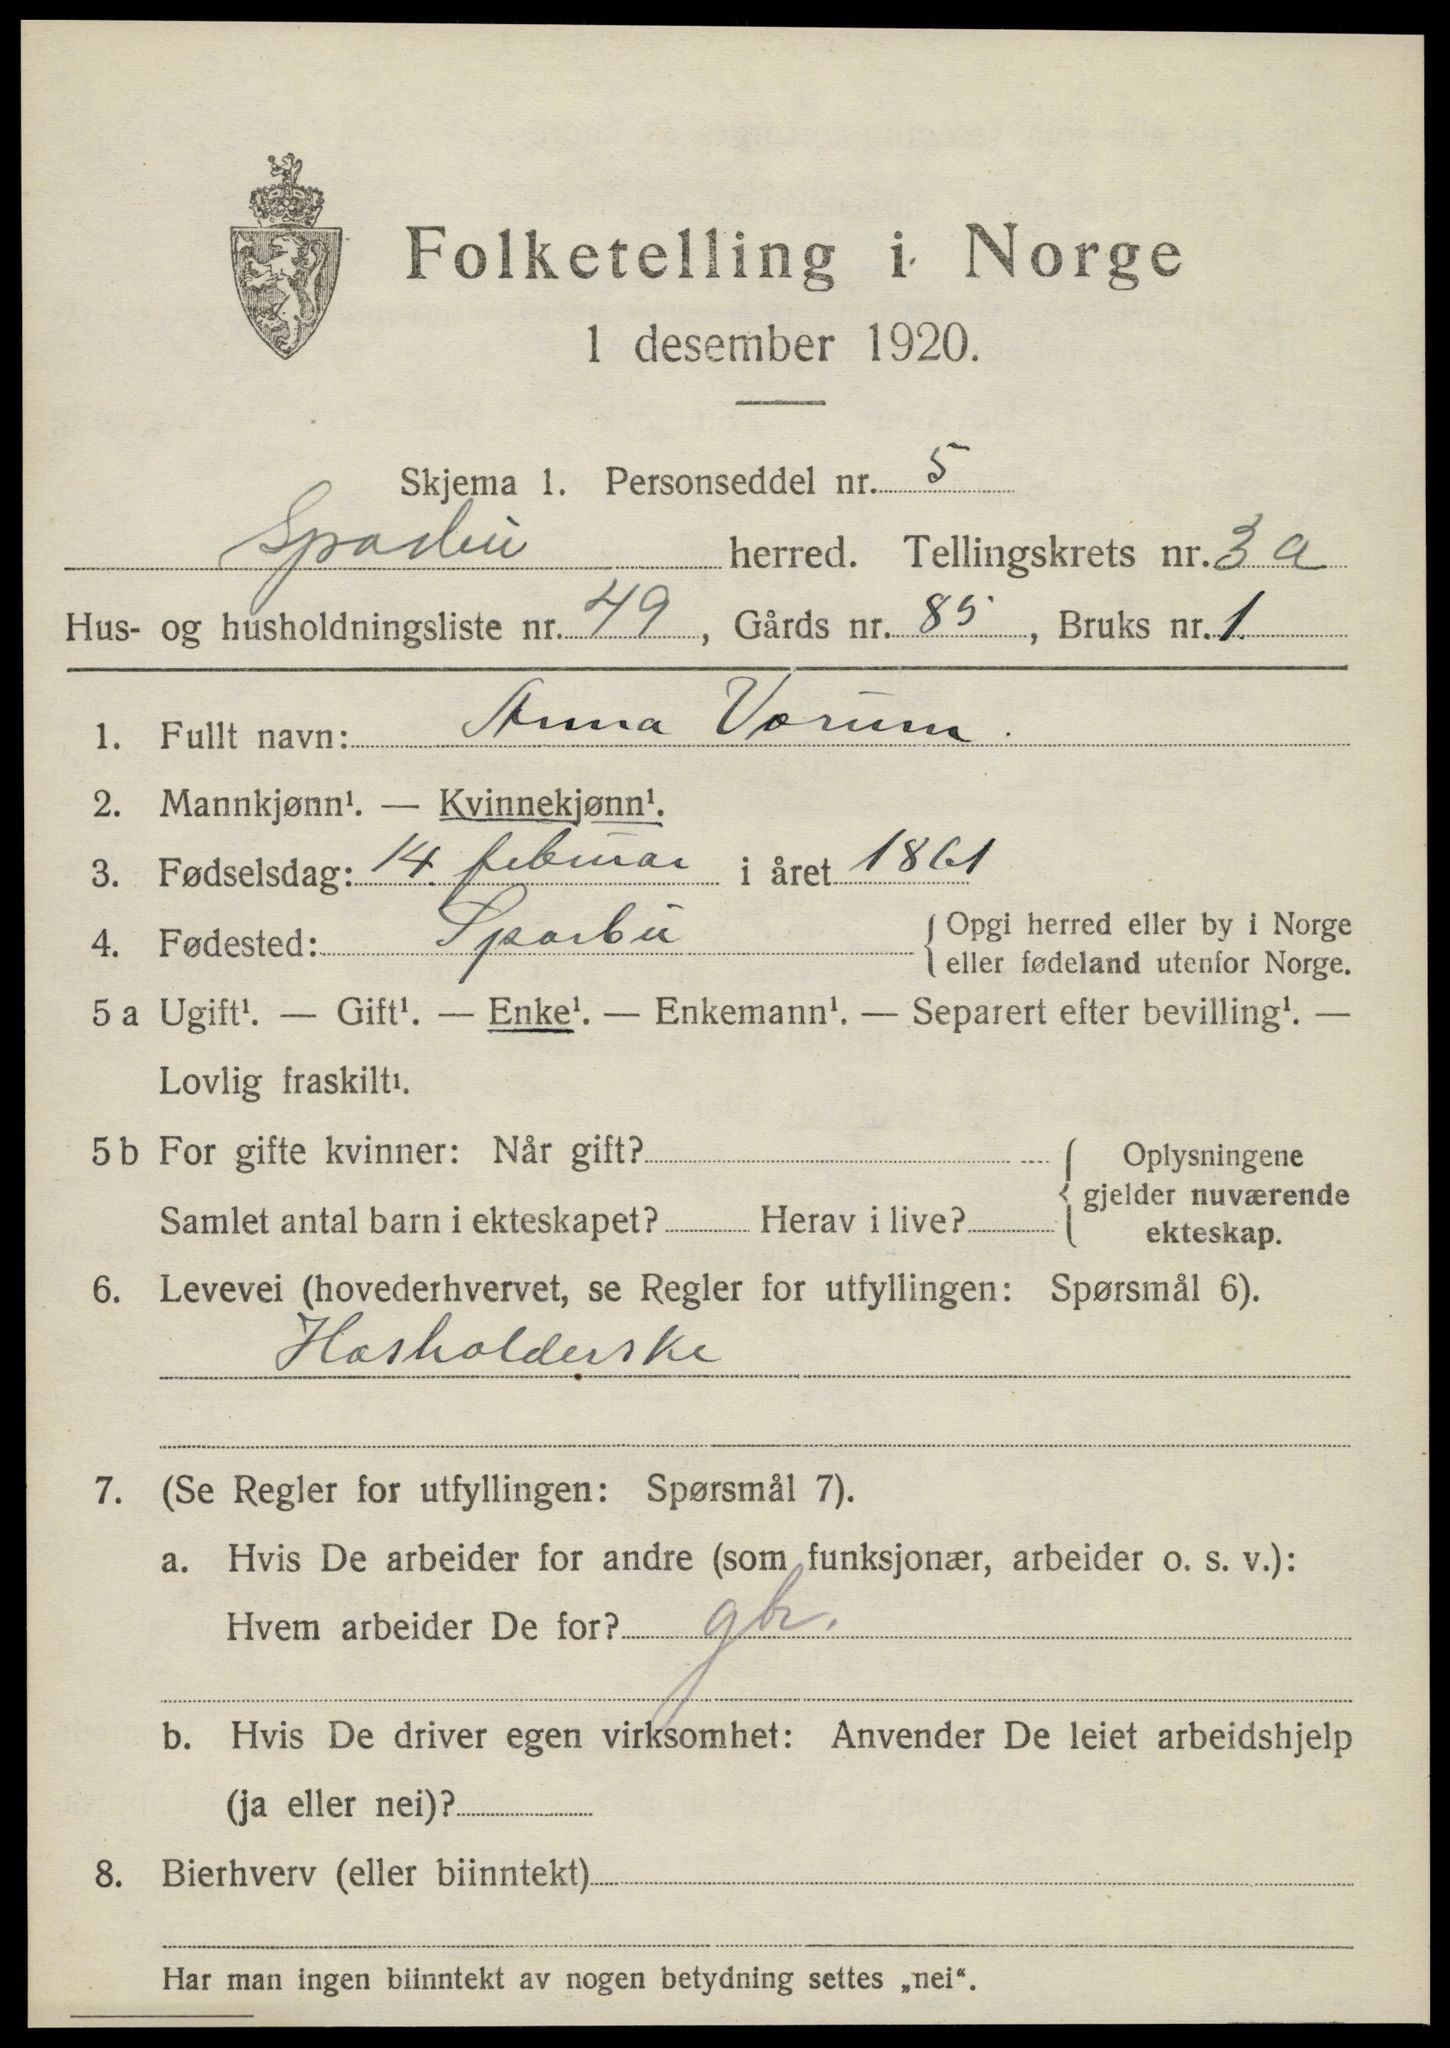 Folketelling i Norge
1 desember 1920.
Skjema 1. Personseddel nr. 5
Sparbu herred. Tellingskrets nr. 3a
Hus- og husholdningsliste nr. 49, Gårds nr. 85, Bruks nr. 1.
1. Fullt navn: Anna Værum.
2. Mannkjønn¹. — Kvinnekjønn¹.
3. Fødselsdag: 14. februar i året 1861
4. Fødested: Sparbu { Opgi herred eller by i Norge
eller fødeland utenfor Norge.
5 a Ugift¹. — Gift¹. — Enke¹. — Enkemann¹. — Separert efter bevilling¹. —
Lovlig fraskilt¹.
5 b For gifte kvinner: Når gift? { Oplysningene
gjelder nuværende
Samlet antal barn i ekteskapet? Herav i live? ekteskap.
6. Levevei (hovederhvervet, se Regler for utfyllingen: Spørsmål 6).
Hosholderske
7. (Se Regler for utfyllingen: Spørsmål 7).
a. Hvis De arbeider for andre (som funksjonær, arbeider o. s. v.):
Hvem arbeider De for? gbr.
b. Hvis De driver egen virksomhet: Anvender De leiet arbeidshjelp
(ja eller nei)?
8. Bierhverv (eller biinntekt)
Har man ingen biinntekt av nogen betydning settes „nei“.